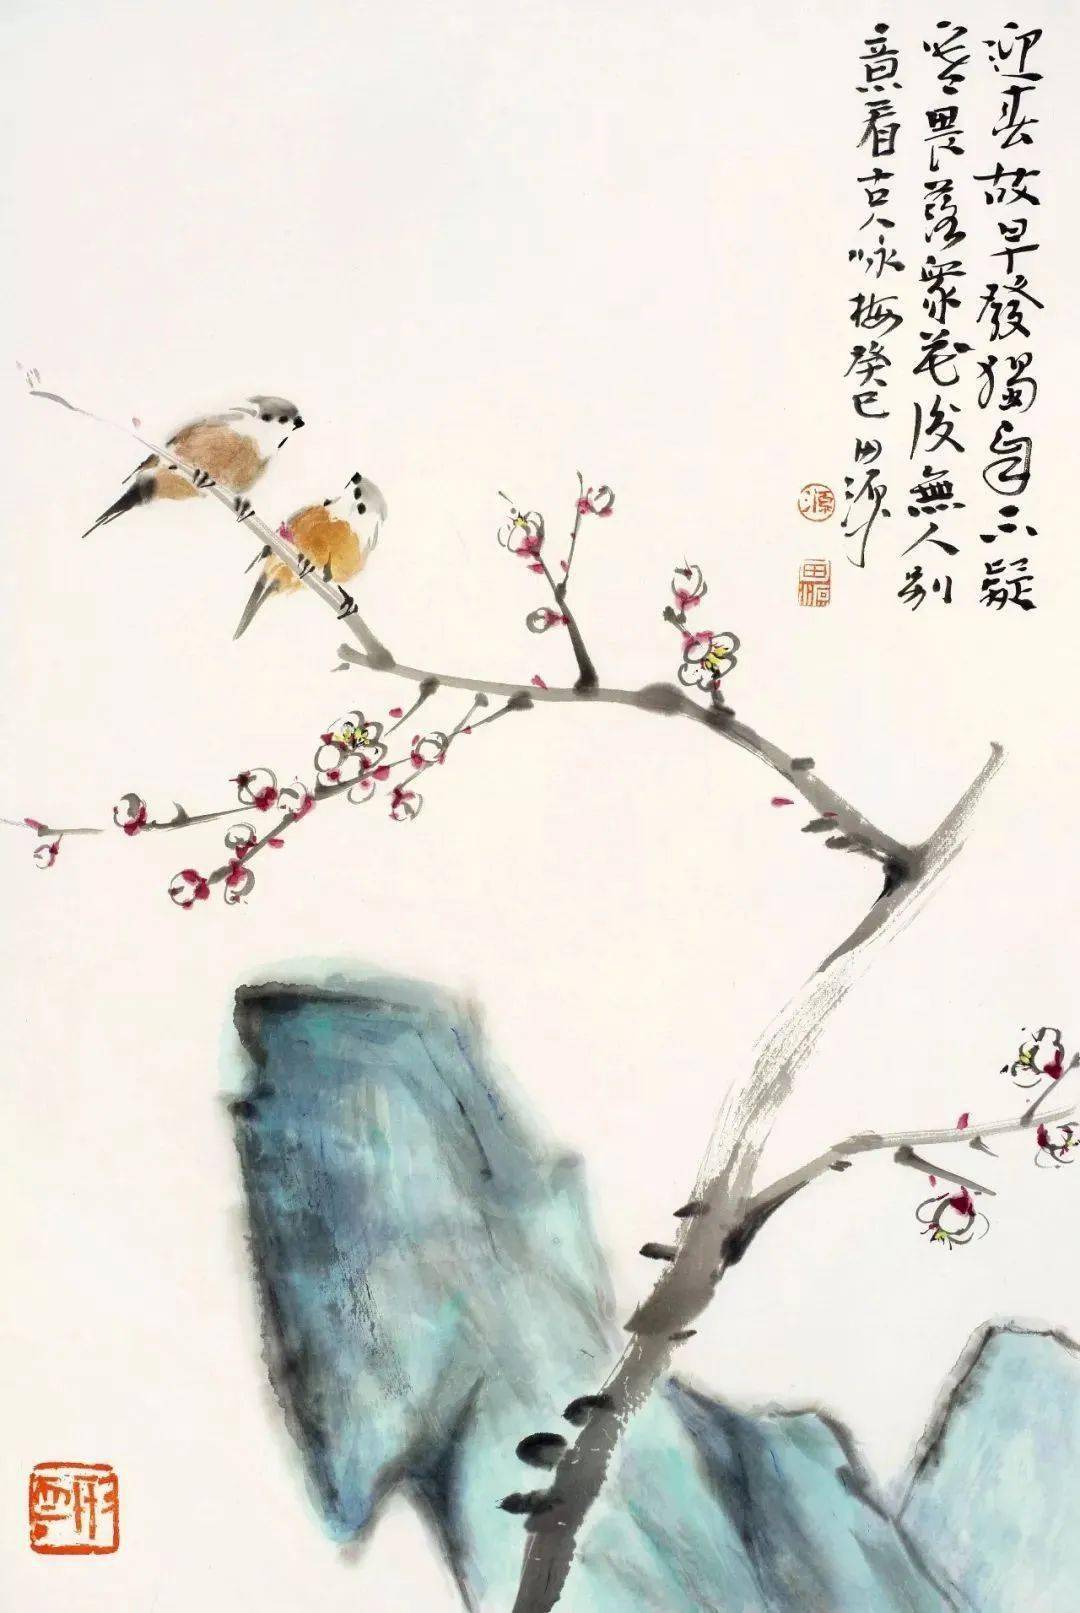 迎春故早發獨自不疑
寒畏落衆花後無人別
意看古人咏梅癸巳田源
源
田源